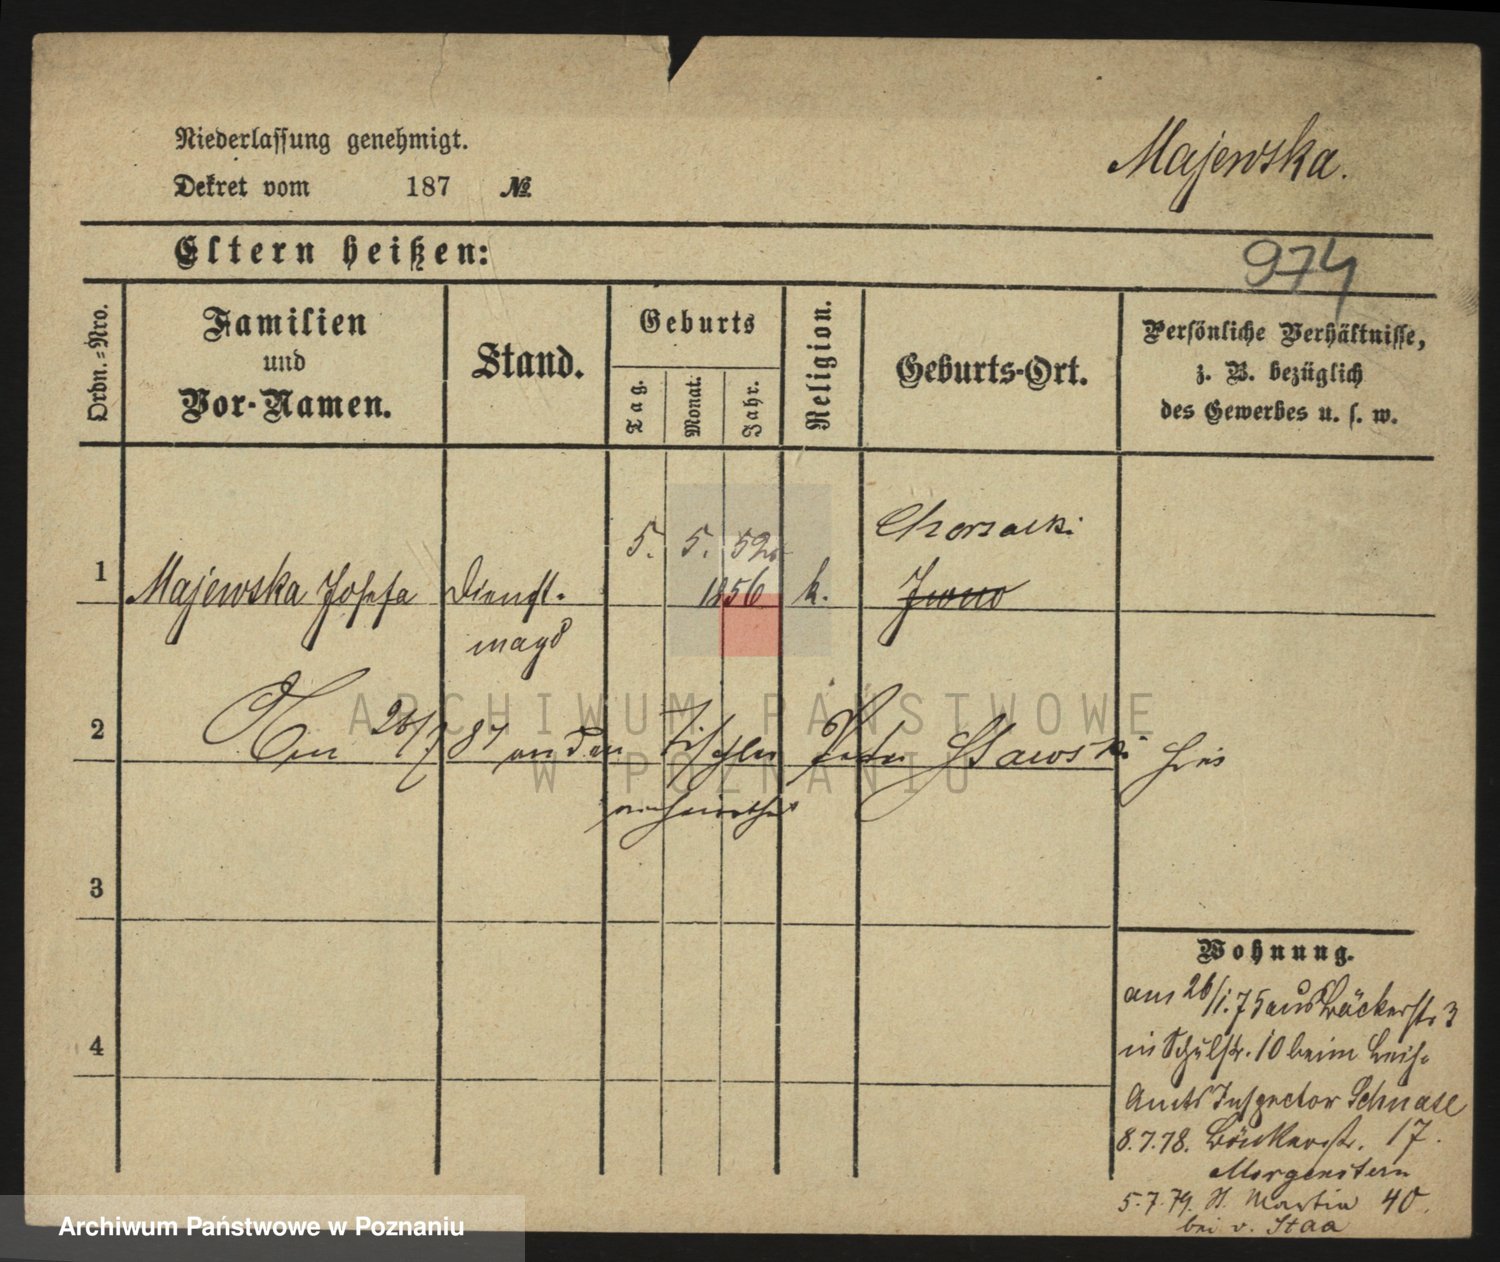 Niederlassung genehmigt.
Dekret vom 187 №
Majewska.
Eltern heißen:
974
Ordn.-Nro.
Familien
und
Vor-Namen.
Stand.
Geburts
Tag.
Monat.
Jahr.
Religion.
Geburts-Ort.
Persönliche Verhältnisse,
z. B. bezüglich
des Gewerbes u. s. w.
5. 5. 52
1 Majewska Josefa Dienst- 1856 k.
magd
2 26/7 87 an den Tischler Peter Slawski hier
verheirathet
3
4
Wohnung.
am 26/1.75 aus Bäckerstr 3
in Schulstr. 10 beim Leih-
Amts Inspector Schnase
8.7.78. Bäckerstr. 17.
Morgenstern
5.7.79. St. Martin 40.
bei v. Staa
ARCHIWUM PAŃSTWOWE
W POZNANIU
Archiwum Państwowe w Poznaniu